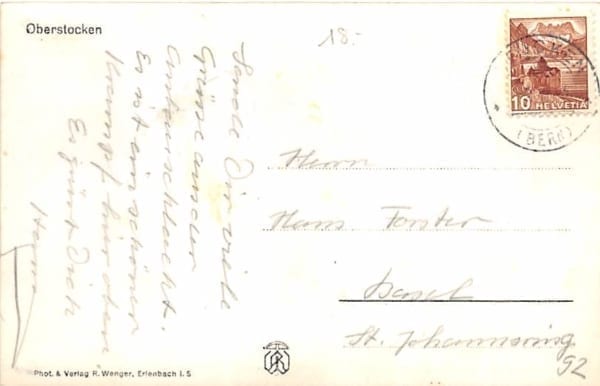 Oberstocken
18.-
Sende Dir viele
Grüsse aus der
Es ist ein schöner
Es grüsst Dich
Herrn
Hans Forster
Basel
St. Johannsring
92
10 HELVETIA
(BERN)
Phot. & Verlag R. Wenger, Erlenbach i. S